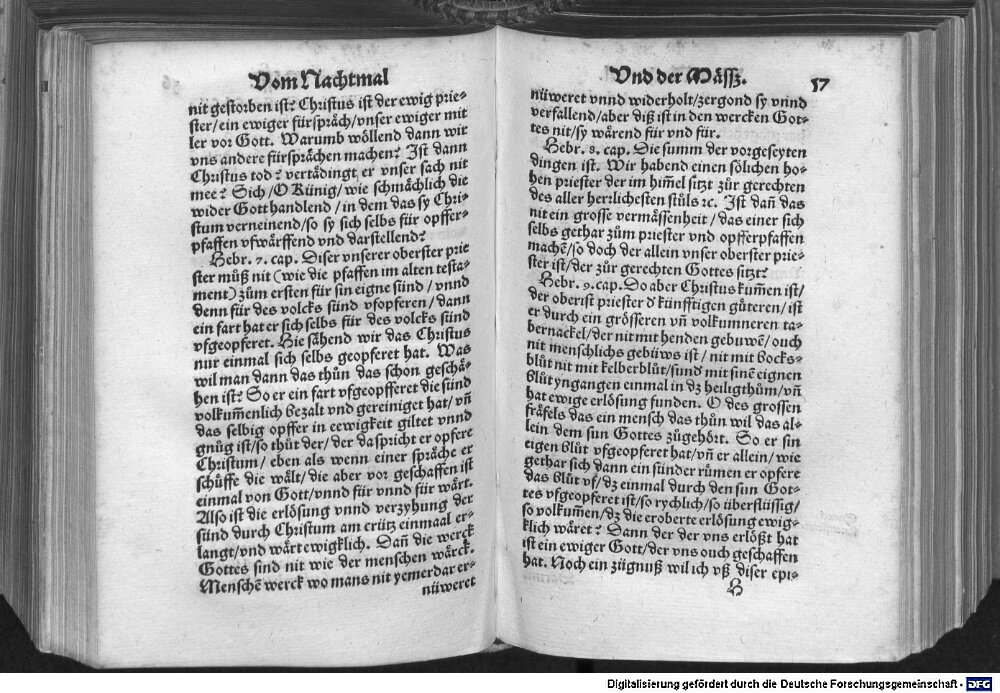 Vom Nachtmal
nit gestorben ist? Christus ist der ewig prie⸗
ster/ein ewiger fürspräch/vnser ewiger mit
ler vor Gott. Warumb wöllend dann wir
vns andere fürsprächen machen? Ist dann
Christus tod? vertädingt er vnser sach nit
mee? Sich/O Künig/wie schmächlich die
wider Gott handlend/in dem das sy Chri⸗
stum verneinend/so sy sich selbs für opffer⸗
pfaffen vfwärffend vnd darstellend?
Hebr. 7. cap. Diser vnserer oberster prie
ster můß nit (wie die pfaffen im alten testa⸗
ment) zům ersten für sin eigne sünd/vnnd
denn für des volcks sünd vfopferen/dann
ein fart hat er sich selbs für des volcks sünd
vfgeopferet. Hie sähend wir das Christus
nur einmal sich selbs geopferet hat. Was
wil man dann das thůn das schon geschä⸗
hen ist? So er ein fart vfgeopfferet die sünd
volkum̃enlich bezalt vnd gereiniget hat/vñ
das selbig opffer in eewigkeit giltet vnnd
gnůg ist/so thůt der/der da spricht er opfere
Christum/eben als wenn einer spräche er
schüffe die wält/die aber vor geschaffen ist
einmal von Gott/vnnd für vnnd für wärt.
Also ist die erlösung vnnd verzyhung der
sünd durch Christum am crütz einmaal er⸗
langt/vnd wärt ewigklich. Dañ die werck
Gottes sind nit wie der menschen wärck.
Menschẽ werck wo mans nit yemerdar er⸗
nüweret
Vnd der Mässz. 57
nüweret vnnd widerholt/zergond sy vnnd
verfallend/aber diß ist in den wercken Got⸗
tes nit/sy wärend für vnd für.
Hebr. 8. cap. Die summ der vorgeseyten
dingen ist. Wir habend einen sölichen ho⸗
hen priester der im him̃el sitzt zůr gerechten
des aller herrlichesten stůls ꝛc. Ist dañ das
nit ein grosse vermässenheit/das einer sich
selbs gethar zům priester vnd opfferpfaffen
machẽ/so doch der allein vnser oberster prie⸗
ster ist/der zůr gerechten Gottes sitzt?
Hebr. 9. cap. Do aber Christus kum̃en ist/
der oberist priester d' künfftigen güteren/ist
er durch ein grösseren vñ volkumneren ta⸗
bernackel/der nit mit henden gebuwẽ/ouch
nit menschlichs gebüws ist/nit mit bocks⸗
blůt nit mit kelberblůt/sund mit sinẽ eignen
blůt yngangen einmal in dz heiligthům/vñ
hat ewige erlösung funden. O des grossen
fräfels das ein mensch das thůn wil das al⸗
lein dem sun Gottes zůgehört. So er sin
eigen blůt vfgeopferet hat/vñ er allein/wie
gethar sich dann ein sünder růmen er opfere
das blůt vf/dz einmal durch den sun Got⸗
tes vfgeopferet ist/so rychlich/so überflüssig/
so volkum̃en/dz die eroberte erlösung ewig⸗
klich wäret? Dann der der vns erlößt hat
ist ein ewiger Gott/der vns ouch geschaffen
hat. Noch ein zügnuß wil ich vß diser epi⸗
H
Digitalisierung gefördert durch die Deutsche Forschungsgemeinschaft - DFG